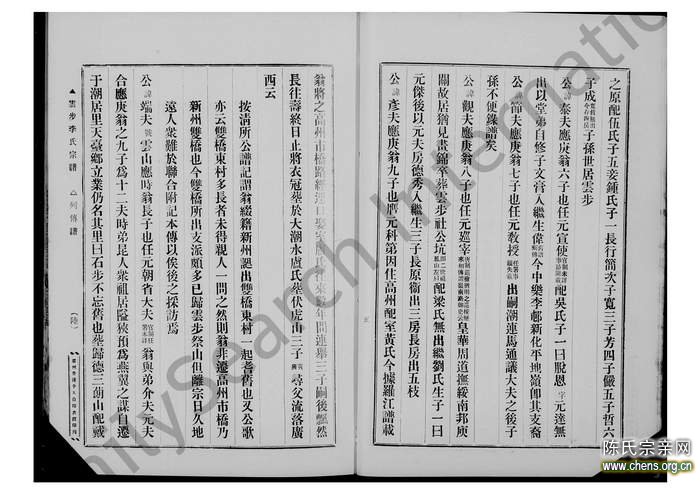 之原配伍氏子五妾鍾氏子一長行簡次子寬三子芳四子儼五子哲六
于成子孫世居雲步
公諱泰夫應庚翁六子也任元宣使配吳氏子一曰脫恩字元達無
出以堂弟自修子文富入繼生偉今中樂李邨新化平地嶺卽其支裔
公諱節夫應庚翁七子也任元敎授出嗣潮連馬通議大夫之後子
孫不便錄譜矣
公諱觀夫應庚翁八子也任元巡宰皇華周道撫綏南邦庾
關故居猶見晝錦卒葬雲步社公坑配梁氏無出繼劉氏生子一曰
元傑後以元夫房德秀入繼生三子長原衞出三房長房出五枝
公諱彥夫應庚翁九子也膺元科第因住高州配室黃氏今據羅江譜載
翁將之高州市橋路經連日娶室盧氏往來數年間連舉三子嗣後飄然
長往壽終日止將衣冠葬於大潮水盧氏葬伏虎山三子尋交流落廣
西云
按淸所公譜記謂翁綴籍新州認出雙橋東村一起耆舊也又公歌
亦云雙橋東村多長者未得親人一問之然則翁非遷高州市橋乃
新州雙橋也今雙橋所出支派頗多已歸雲步祭山但離宗日久地
遠人衆難於聯合附記本傳以俟後之採訪焉
公諱端夫號雲山應時翁長子也任元朝省大夫翁與弟介夫元夫
合應庚翁之九子爲十二夫時弟昆人衆祖居隘狹預爲燕翼之謀自遷
于潮居里天臺鄕立業仍名其里曰石步不忘舊也葬歸德三蒟山配戚
雲步李氏宗譜
列傳譜
陸
陈氏宗亲网
www.chens.org.cn